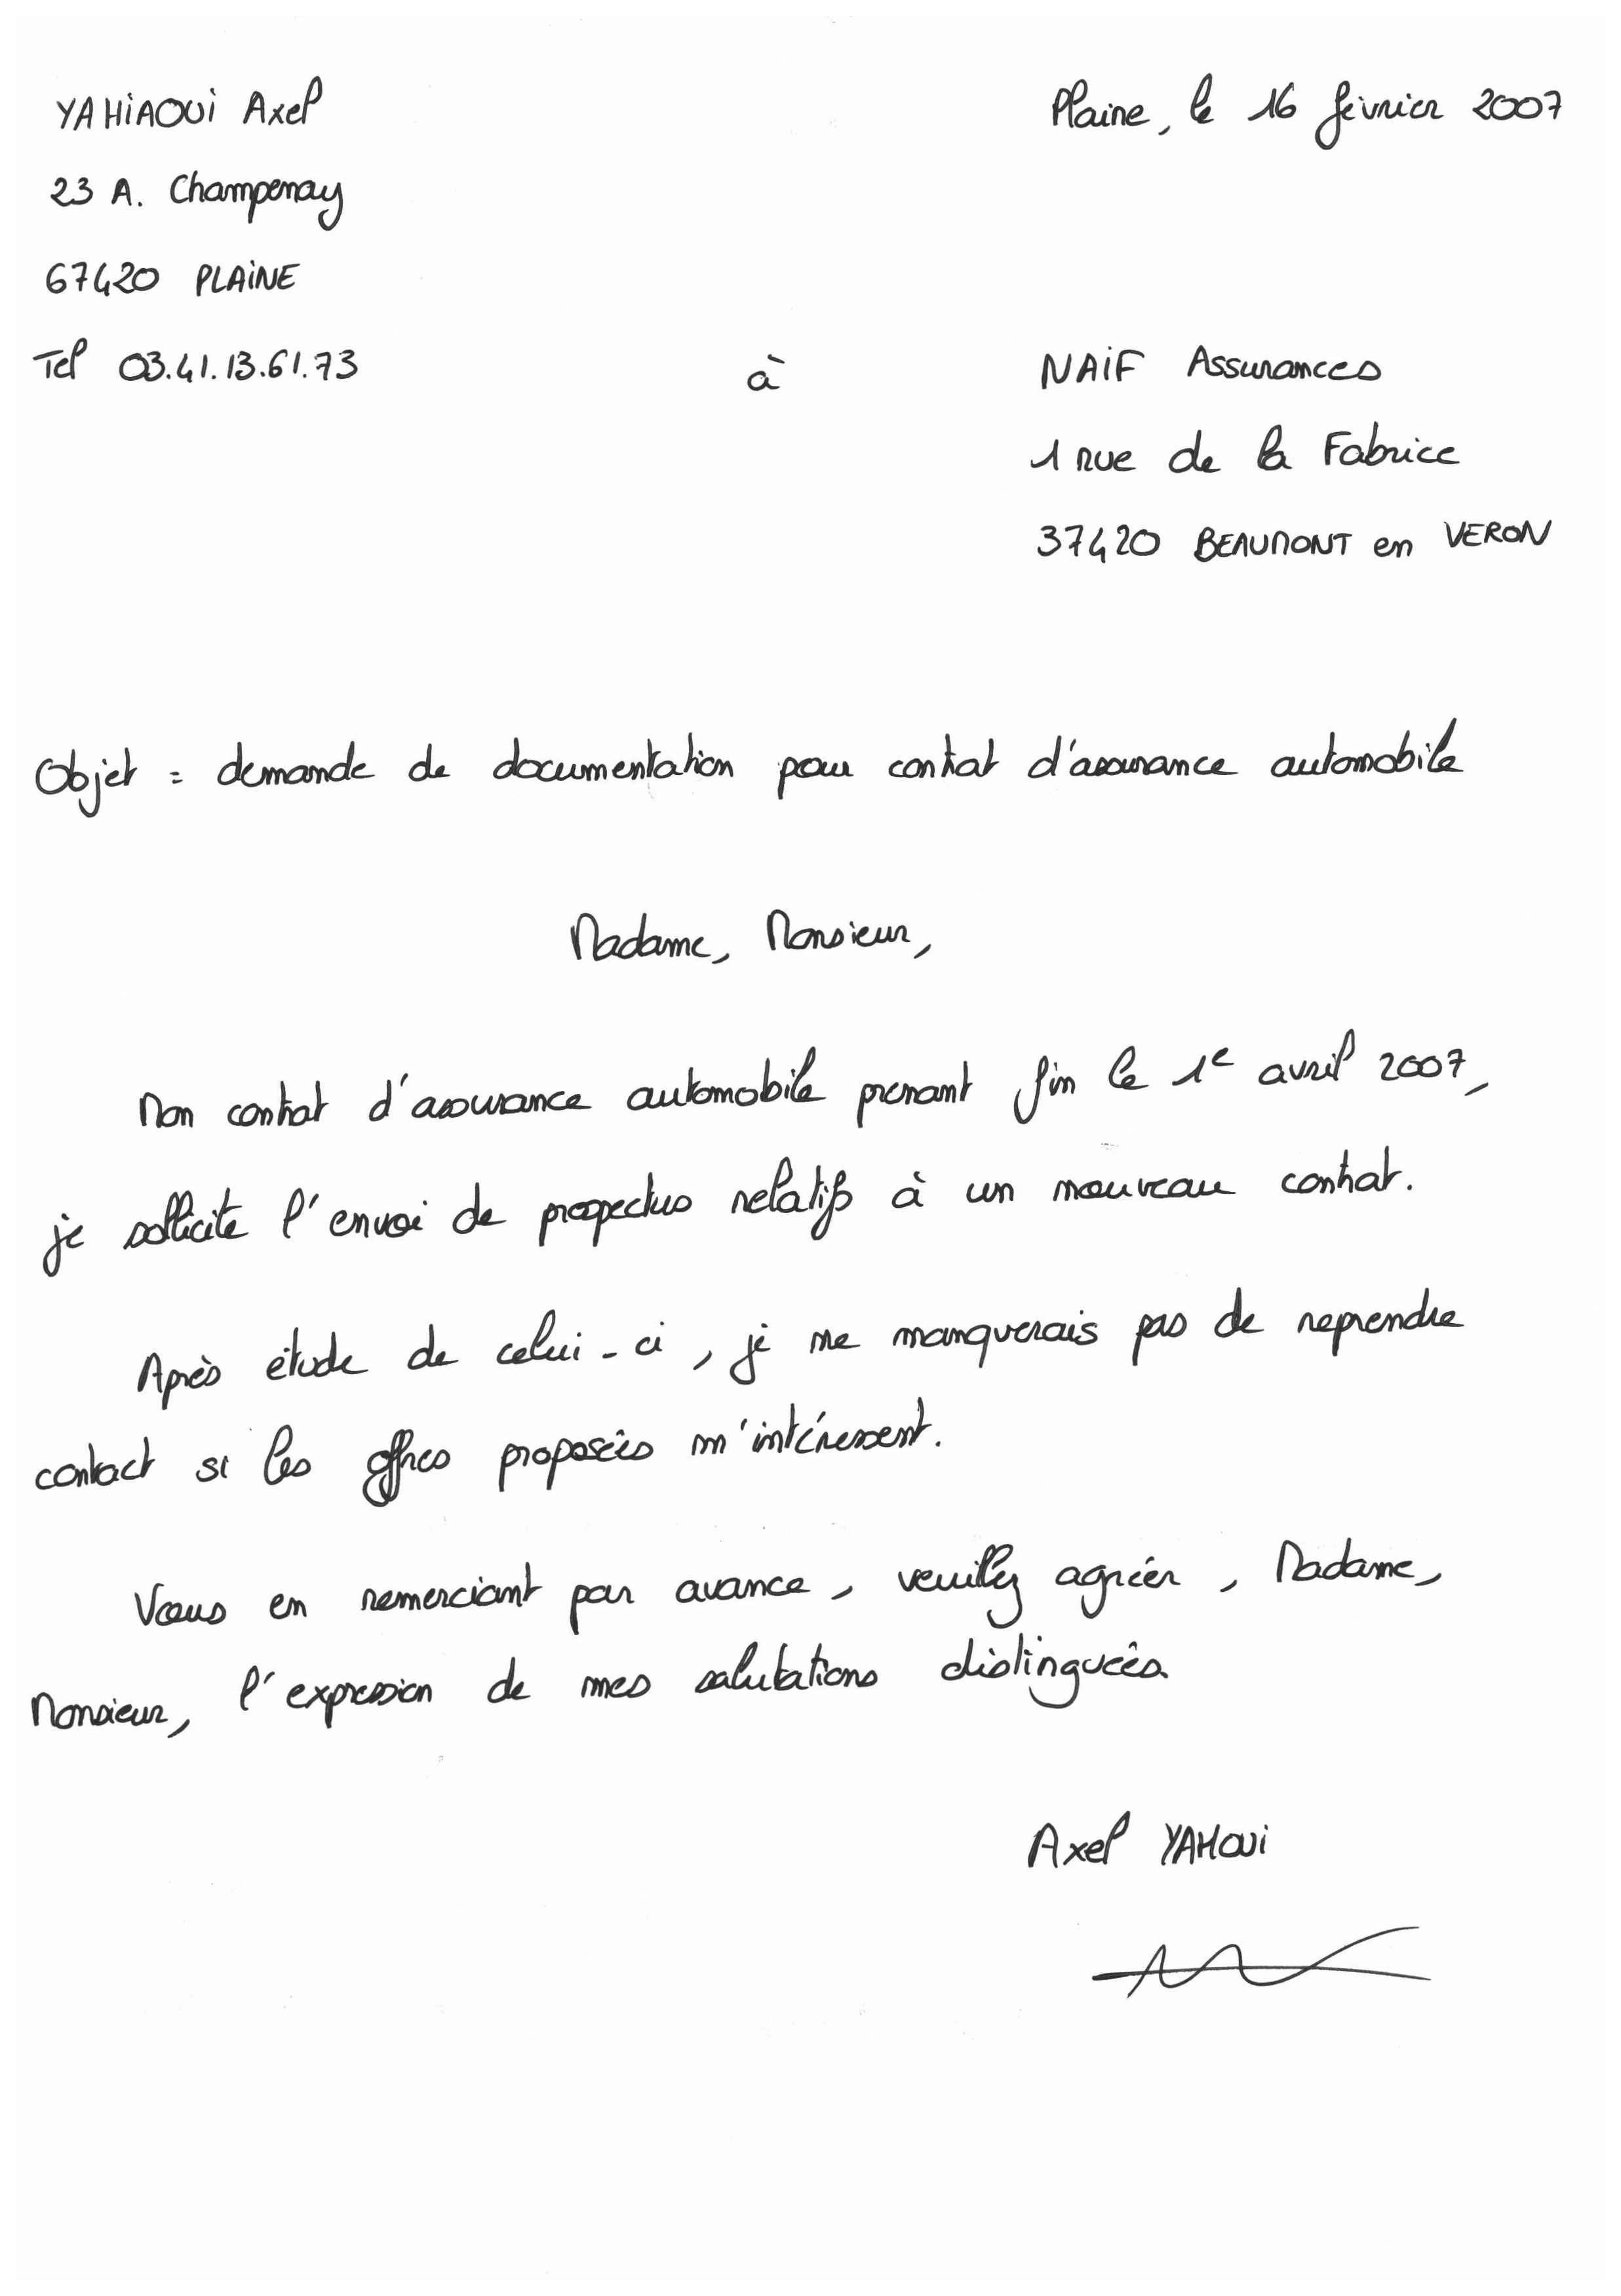 YAHiAOUi Axel
Plaine, le 16 février 2007
23 A. Champenay
67420 PLAiNE
Tel 03.41.13.61.73
à
NAiF Assurances
1 rue de la Fabrice
37420 BEAUMONT en VERON
Objet = demande de documentation pour contrat d'assurance automobile
Madame, Monsieur,
Mon contrat d'assurance automobile prenant fin le 1e avril 2007,
je sollicite l'envoi de prospectus relatifs à un nouveau contrat.
Après étude de celui-ci, je ne manquerais pas de reprendre
contact si les offres proposées m'intéressent.
Vous en remerciant par avance, veuillez agréer, Madame,
Monsieur, l'expression de mes salutations distinguées.
Axel YAHOUi